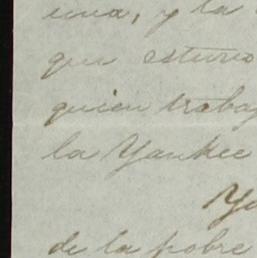 una, y la
que estuvo
quien trabaj
la Yankee
Yo
de la pobre